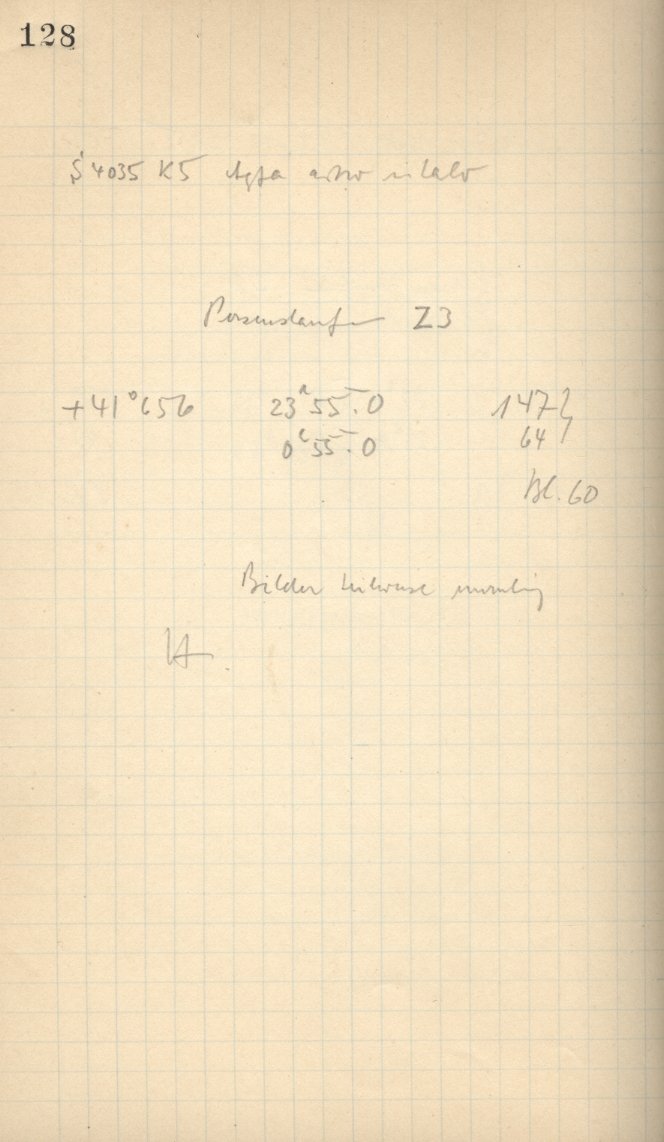 128
S 4035 K5 Agfa astro unlalo
Z3
+41°656 23ʰ55ᵐ.0 147
0ʰ55ᵐ.0 64
Bl. 60
Bilder teilweise unruhig